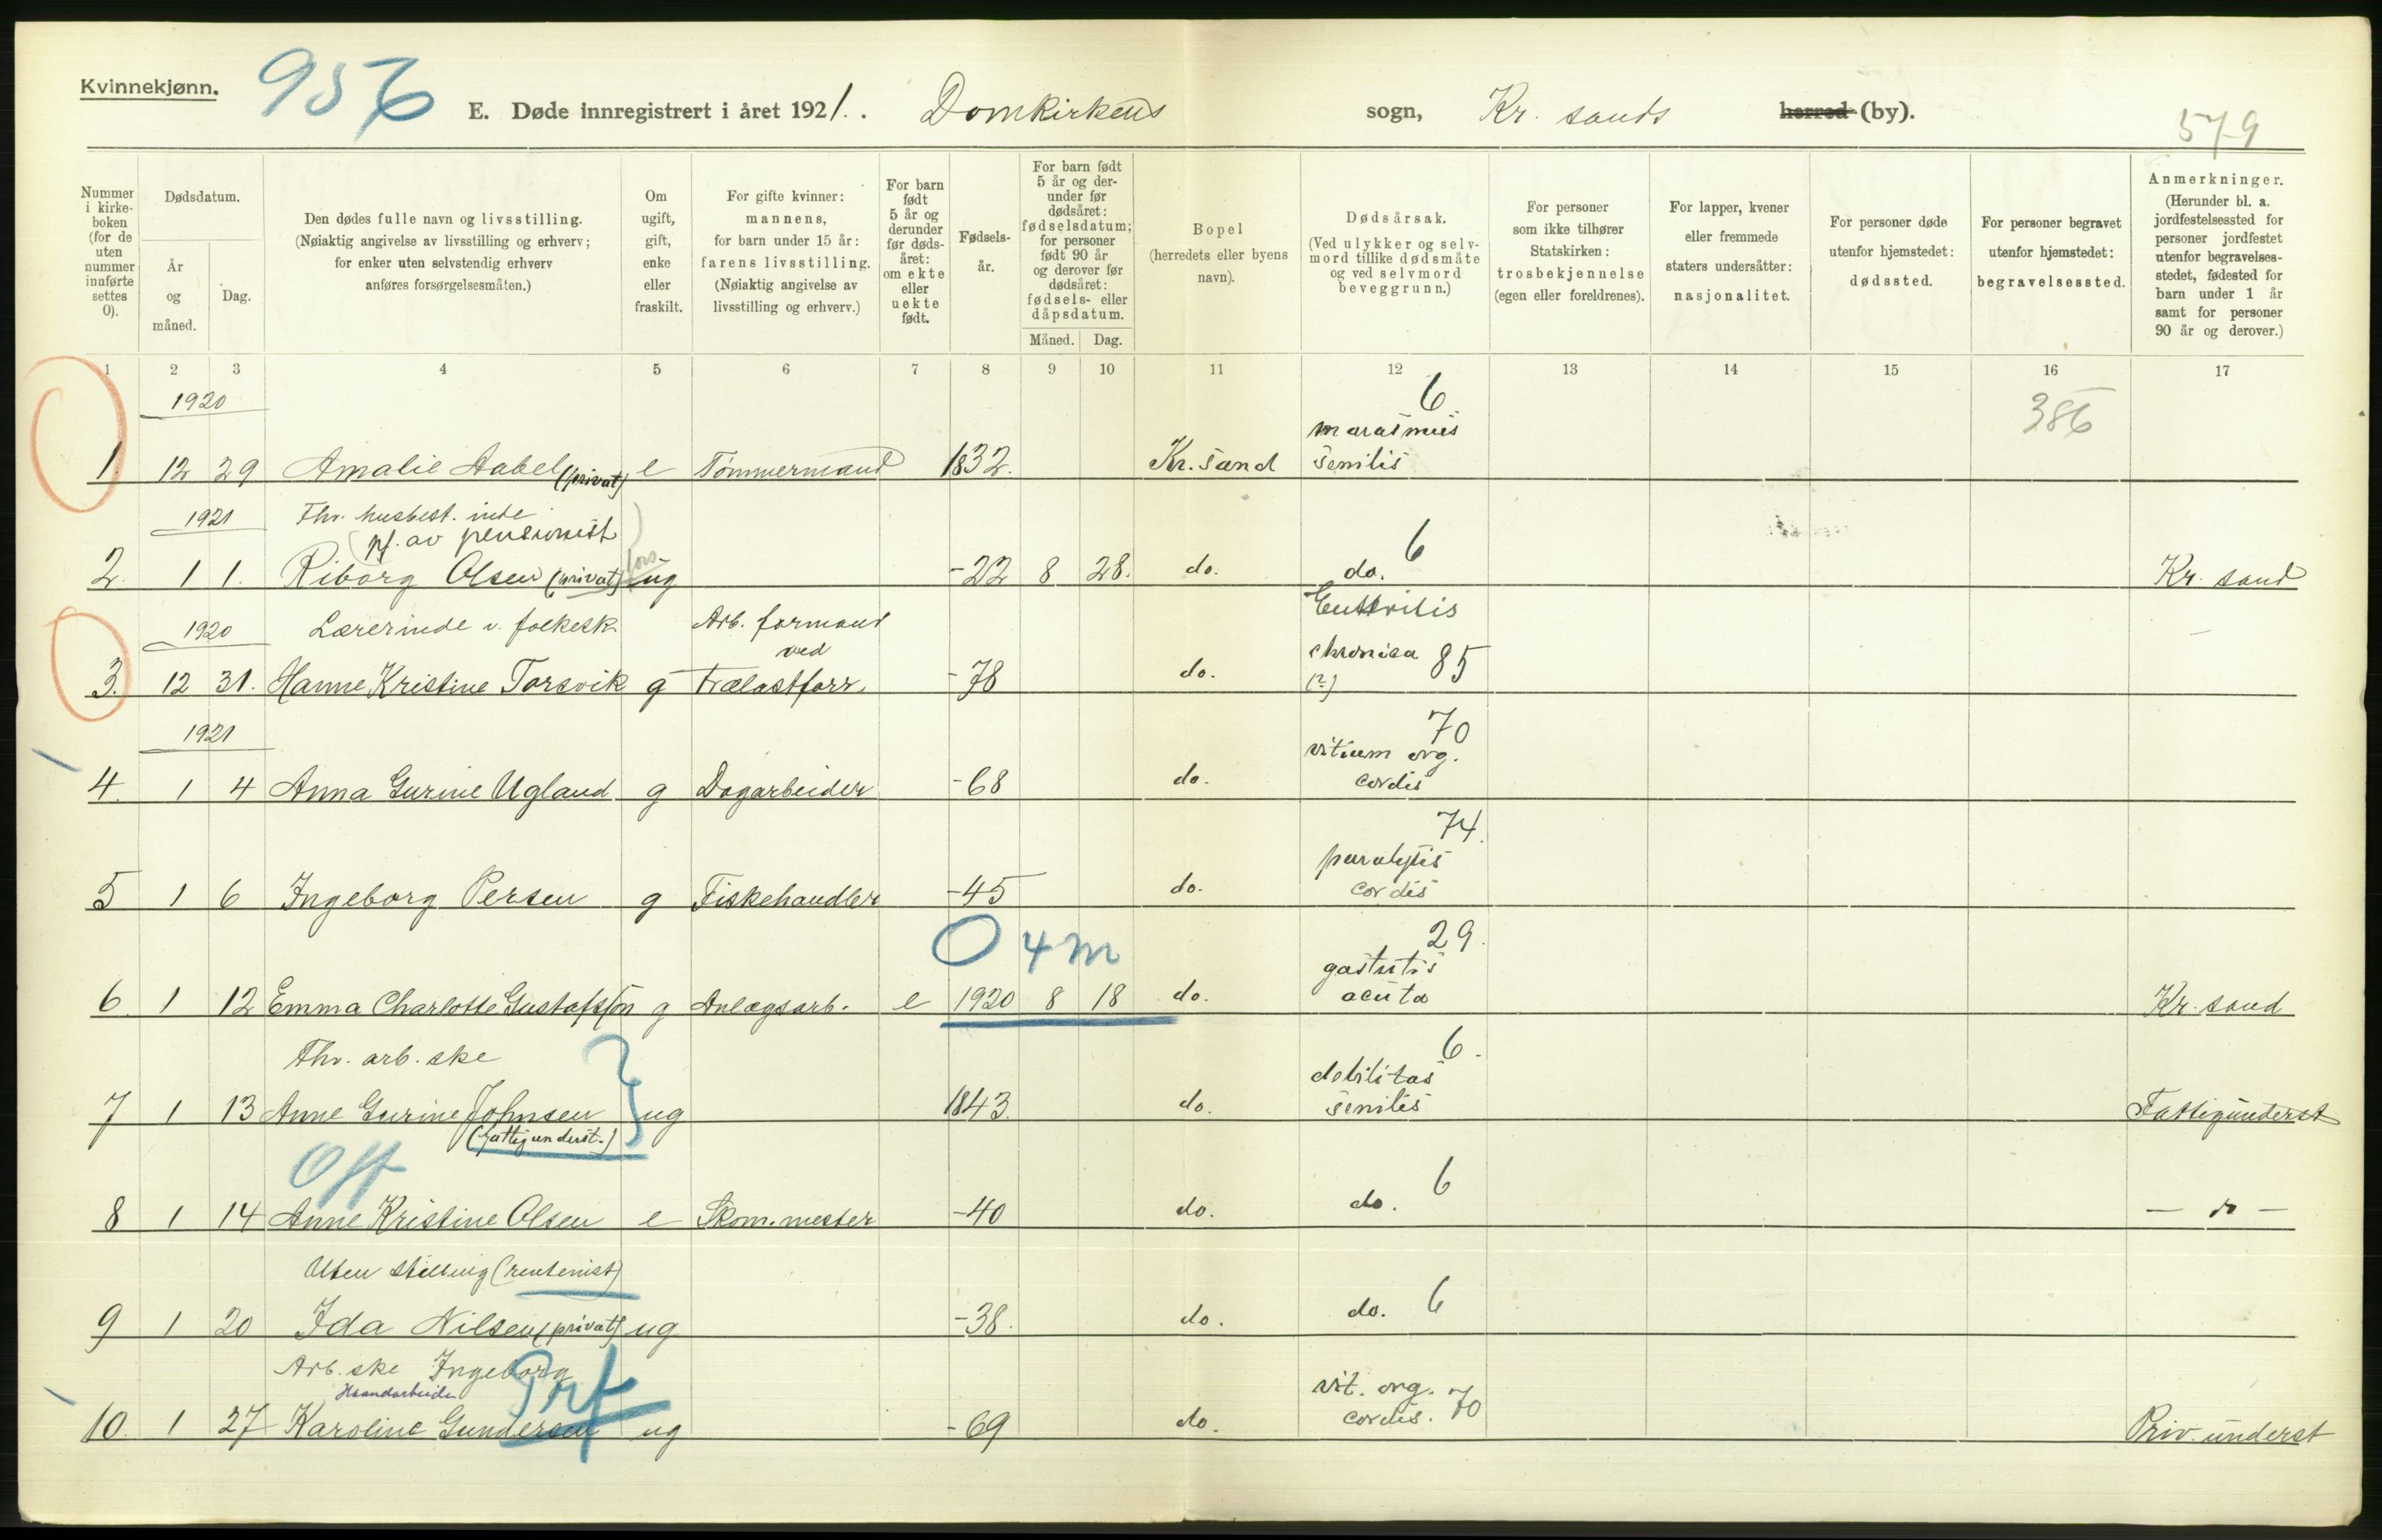 Kvinnekjønn.
956
E. Døde innregistrert i året 1921. . Domkirkens sogn, Kr. sands herred (by).
579
Nummer i kirkeboken (for de uten nummer innførte settes 0).
Dødsdatum.
År og måned.
Dag.
Den dødes fulle navn og livsstilling.
(Nøiaktig angivelse av livsstilling og erhverv;
for enker uten selvstendig erhverv
anføres forsørgelsesmåten.)
Om ugift, gift, enke eller fraskilt.
For gifte kvinner:
mannens,
for barn under 15 år:
farens livsstilling.
(Nøiaktig angivelse av
livsstilling og erhverv.)
For barn født 5 år og derunder før dødsåret: om ekte eller uekte født.
Fødselsår.
For barn født 5 år og derunder før dødsåret: fødselsdatum; for personer født 90 år og derover før dødsåret: fødsels- eller dåpsdatum.
Måned. Dag.
Bopel
(herredets eller byens
navn).
Dødsårsak.
(Ved ulykker og selvmord tillike dødsmåte og ved selvmord beveggrunn.)
For personer
som ikke tilhører
Statskirken:
trosbekjennelse
(egen eller foreldrenes).
For lapper, kvener
eller fremmede
staters undersåtter:
nasjonalitet.
For personer døde
utenfor hjemstedet:
dødssted.
For personer begravet
utenfor hjemstedet:
begravelsessted.
Anmerkninger.
(Herunder bl. a.
jordfestelsessted for
personer jordfestet
utenfor begravelses-
stedet, fødested for
barn under 1 år
samt for personer
90 år og derover.)
1 2 3 4 5 6 7 8 9 10 11 12 13 14 15 16 17
1920
6
386
marasmus
1. 12 29 Amalie Aabel (privat) e Tømmermand 1832. Kr. sand senilis
1921 Fhv. husbest. inde
pf. av pensionist
6
2. 1 1. Riborg Olsen (privat) ug -22 8 28. do. do. Kr. sand
1920 Lærerinde v. folkesk. Arb. formand
Enteritis
ved
chronica 85
3. 12 31. Hanne Kristine Torsvik g Trælastforr. -78 do. (?)
1921
70
vitium org.
4. 1 4 Anna Gurine Ugland g Dagarbeider -68 do. cordis
74.
paralysis
5 1 6 Ingeborg Persen g Fiskehandler -45 do. cordis
0 4 m
29.
gastritis
6. 1 12 Emma Charlotte Gustafsson g Anlægsarb. e 1920 8 18 do. acuta Kr. sand
Fhv. arb. ske
6.
debilitas
7 1 13 Anne Gurine Johnsen ug 1843. do. senilis Fattigunderst
(fattigunderst.)
Off
6
8 1 14 Anne Kristine Olsen e Skom. mester -40 do. do. — do —
Uten stilling (rentenist)
9 1 20 Ida Nilsen (privat) ug -38. do. do. 6
Arb. ske Ingeborg
Haandarbeide
Prf
vit. org. 70
10. 1 27 Karoline Gundersen ug -69 do. cordis. Priv. underst